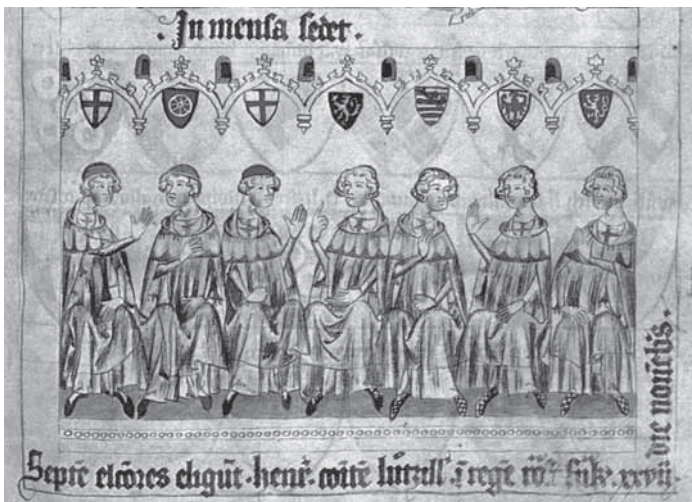 · In mensa sedet ·
Septē elc̄ores eligūt · henr̄ · com̄tē luczill · ī regē ro᷑ · frāk · xxvij ·
die novēb̄s ·